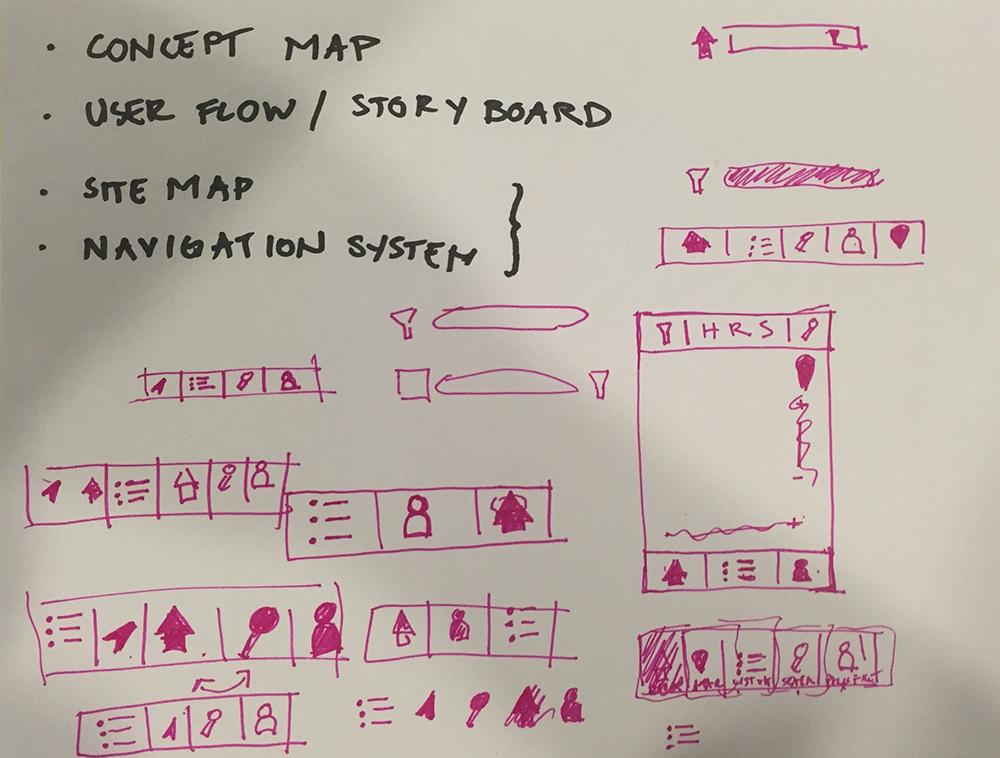 · CONCEPT MAP
· USER FLOW / STORY BOARD
· SITE MAP
· NAVIGATION SYSTEM
HRS